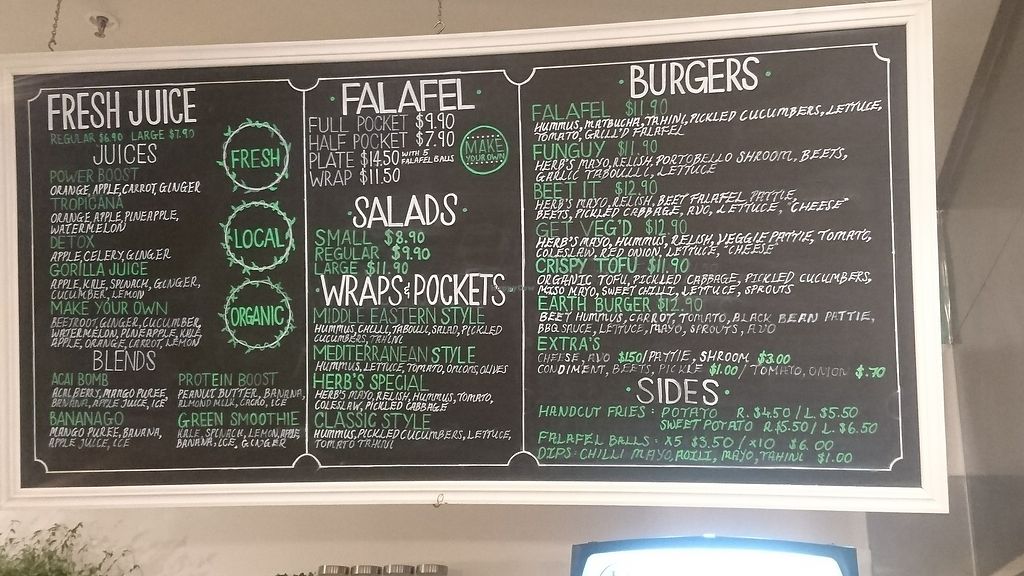 FRESH JUICE
REGULAR $6.90 LARGE $7.90
JUICES
POWER BOOST
ORANGE, APPLE, CARROT, GINGER
TROPICANA
ORANGE, APPLE, PINEAPPLE,
WATERMELON
DETOX
APPLE, CELERY, GINGER
GORILLA JUICE
APPLE, KALE, SPINACH, GINGER,
CUCUMBER, LEMON
MAKE YOUR OWN
BEETROOT, GINGER, CUCUMBER,
WATERMELON, PINEAPPLE, KALE
APPLE, ORANGE, CARROT, LEMON
BLENDS
ACAI BOMB
ACAI BERRY, MANGO PUREE,
BANANA, APPLE JUICE, ICE
BANANAGO
MANGO PUREE, BANANA,
APPLE JUICE, ICE
PROTEIN BOOST
PEANUT BUTTER, BANANA,
ALMOND MILK, CACAO, ICE
GREEN SMOOTHIE
KALE, SPINACH, LEMON, APPLE,
BANANA, ICE, GINGER
FRESH
LOCAL
ORGANIC
FALAFEL
FULL POCKET $9.90
HALF POCKET $7.90
PLATE $14.50 WITH 5 FALAFEL BALLS
WRAP $11.50
MAKE
YOUR OWN
SALADS
SMALL $8.90
REGULAR $9.90
LARGE $11.90
WRAPS & POCKETS
MIDDLE EASTERN STYLE
HUMMUS, CHILLI, TABOULI, SALAD, PICKLED
CUCUMBERS, TAHINI
MEDITERRANEAN STYLE
HUMMUS, LETTUCE, TOMATO, ONIONS, OLIVES
HERB'S SPECIAL
HERB'S MAYO, RELISH, HUMMUS, TOMATO,
COLESLAW, PICKLED CABBAGE
CLASSIC STYLE
HUMMUS, PICKLED CUCUMBERS, LETTUCE,
TOMATO TAHINI
BURGERS
FALAFEL $11.90
HUMMUS, MATBUCHA, TAHINI, PICKLED CUCUMBERS, LETTUCE,
TOMATO GRILL'D FALAFEL
FUNGUY $11.90
HERB'S MAYO, RELISH, PORTOBELLO SHROOM, BEETS,
GARLIC TABOULLI, LETTUCE
BEET IT $12.90
HERB'S MAYO, RELISH, BEET FALAFEL PATTIE,
BEETS, PICKLED CABBAGE, AVO, LETTUCE, "CHEESE"
GET VEG'D $12.90
HERB'S MAYO, HUMMUS, RELISH, VEGGIE PATTIE, TOMATO,
COLESLAW, RED ONION, LETTUCE, "CHEESE
CRISPY TOFU $11.90
ORGANIC TOFU, PICKLED CABBAGE, PICKLED CUCUMBERS,
MISO MAYO, SWEET CHILLI, LETTUCE, SPROUTS
EARTH BURGER $12.90
BEET HUMMUS, CARROT, TOMATO, BLACK BEAN PATTIE,
BBQ SAUCE, LETTUCE, MAYO, SPROUTS, AVO
EXTRA'S
CHEESE, AVO $1.50 / PATTIE, SHROOM $3.00
CONDIMENT, BEETS, PICKLE $1.00 / TOMATO, ONION $.70
SIDES
HANDCUT FRIES: POTATO R.$4.50 / L.$5.50
SWEET POTATO R.$5.50 / L.$6.50
FALAFEL BALLS: X5 $3.50 / X10 $6.00
DIPS: CHILLI MAYO, AOILI, MAYO, TAHINI $1.00